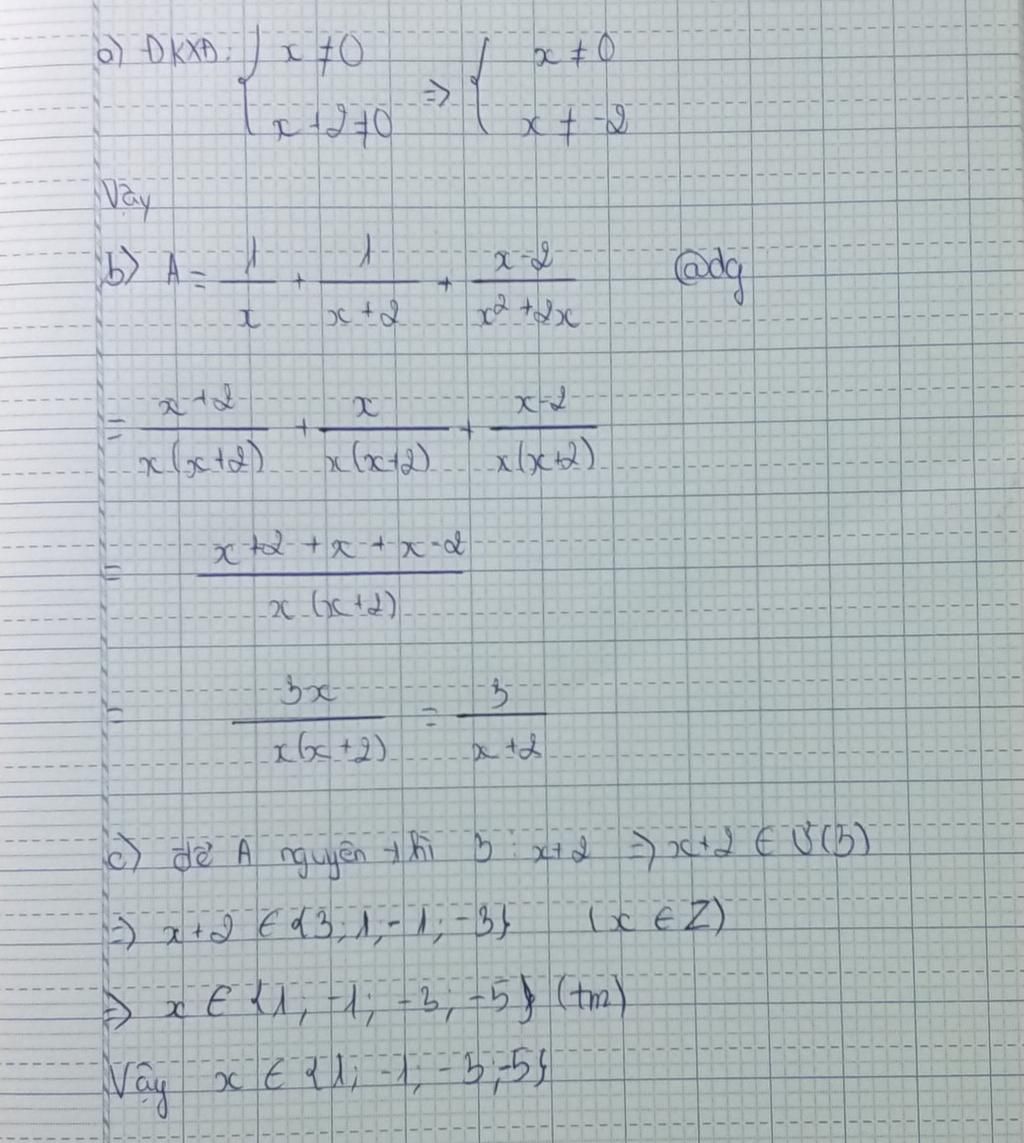 a) ĐKXĐ: { x ≠ 0 ; x + 2 ≠ 0 => { x ≠ 0 ; x ≠ -2
Vậy
b) A = 1/x + 1/(x+2) + (x-2)/(x² + 2x) @dg
= (x+2)/(x(x+2)) + x/(x(x+2)) + (x-2)/(x(x+2))
= (x+2+x+x-2)/(x(x+2))
= 3x/(x(x+2)) = 3/(x+2)
c) để A nguyên thì 3 ⋮ x+2 => x+2 ∈ Ư(3)
=> x+2 ∈ {3; 1; -1; -3} (x ∈ Z)
=> x ∈ {1; -1; -3; -5} (tm)
Vậy x ∈ {1; -1; -3; -5}